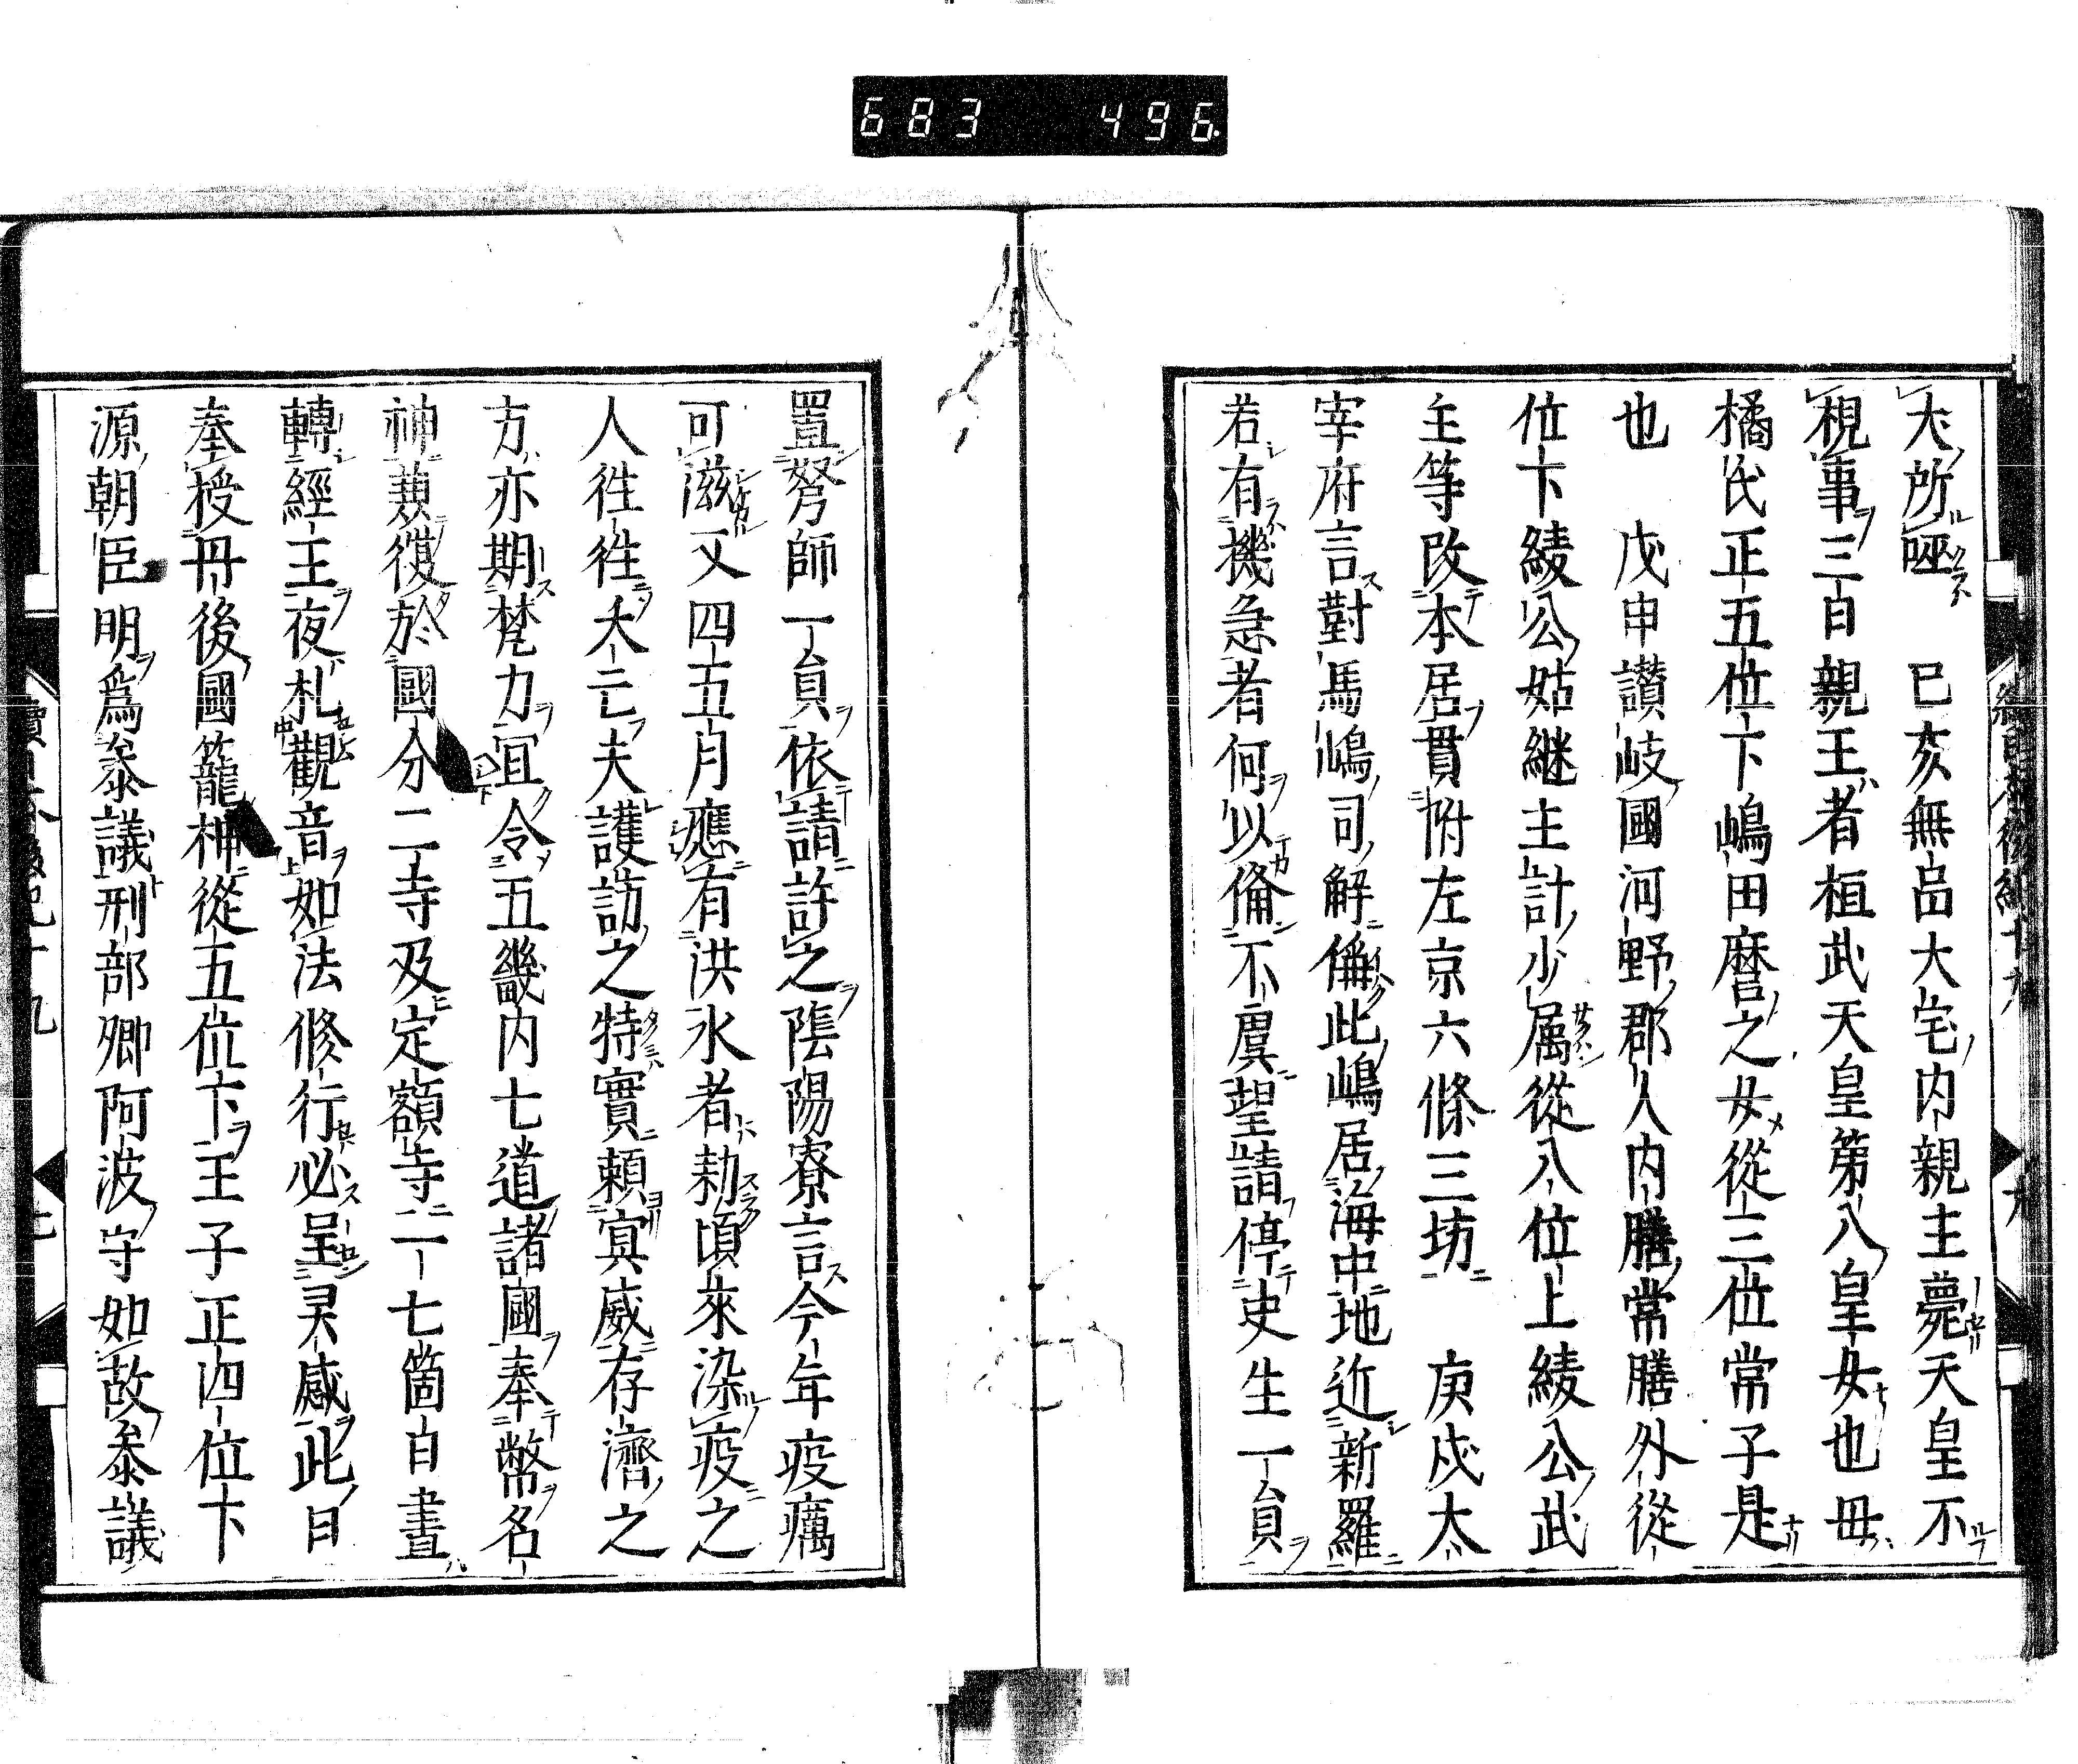 683 496.
大所唖 己亥無品大宅内親王薨天皇不
視事三日親王者桓武天皇第八皇女也母
橘氏正五位下嶋田麿之女從三位常子是
也 戊申讃岐國河野郡人内膳掌膳外從
位下綾公姑継主計少属從八位上綾公武
主等改本居貫附左京六條三坊 庚戌太
宰府言對馬嶋司解偁此嶋居海中地近新羅
若有機急者何以備不虞望請停史生一員
置弩師一員依請許之陰陽寮言今年疫癘
可滋又四五月應有洪水者勅頃來染疫之
人往往夭亡夫護訪之特實頼冥威存濟之
方亦期梵力宜令五畿内七道諸國奉幣名
神兼復於國分二寺及定額寺二七箇日晝
轉經王夜礼觀音如法修行必呈灵感此日
奉授丹後國籠神從五位下王子正四位下
源朝臣明爲參議刑部卿阿波守如故參議